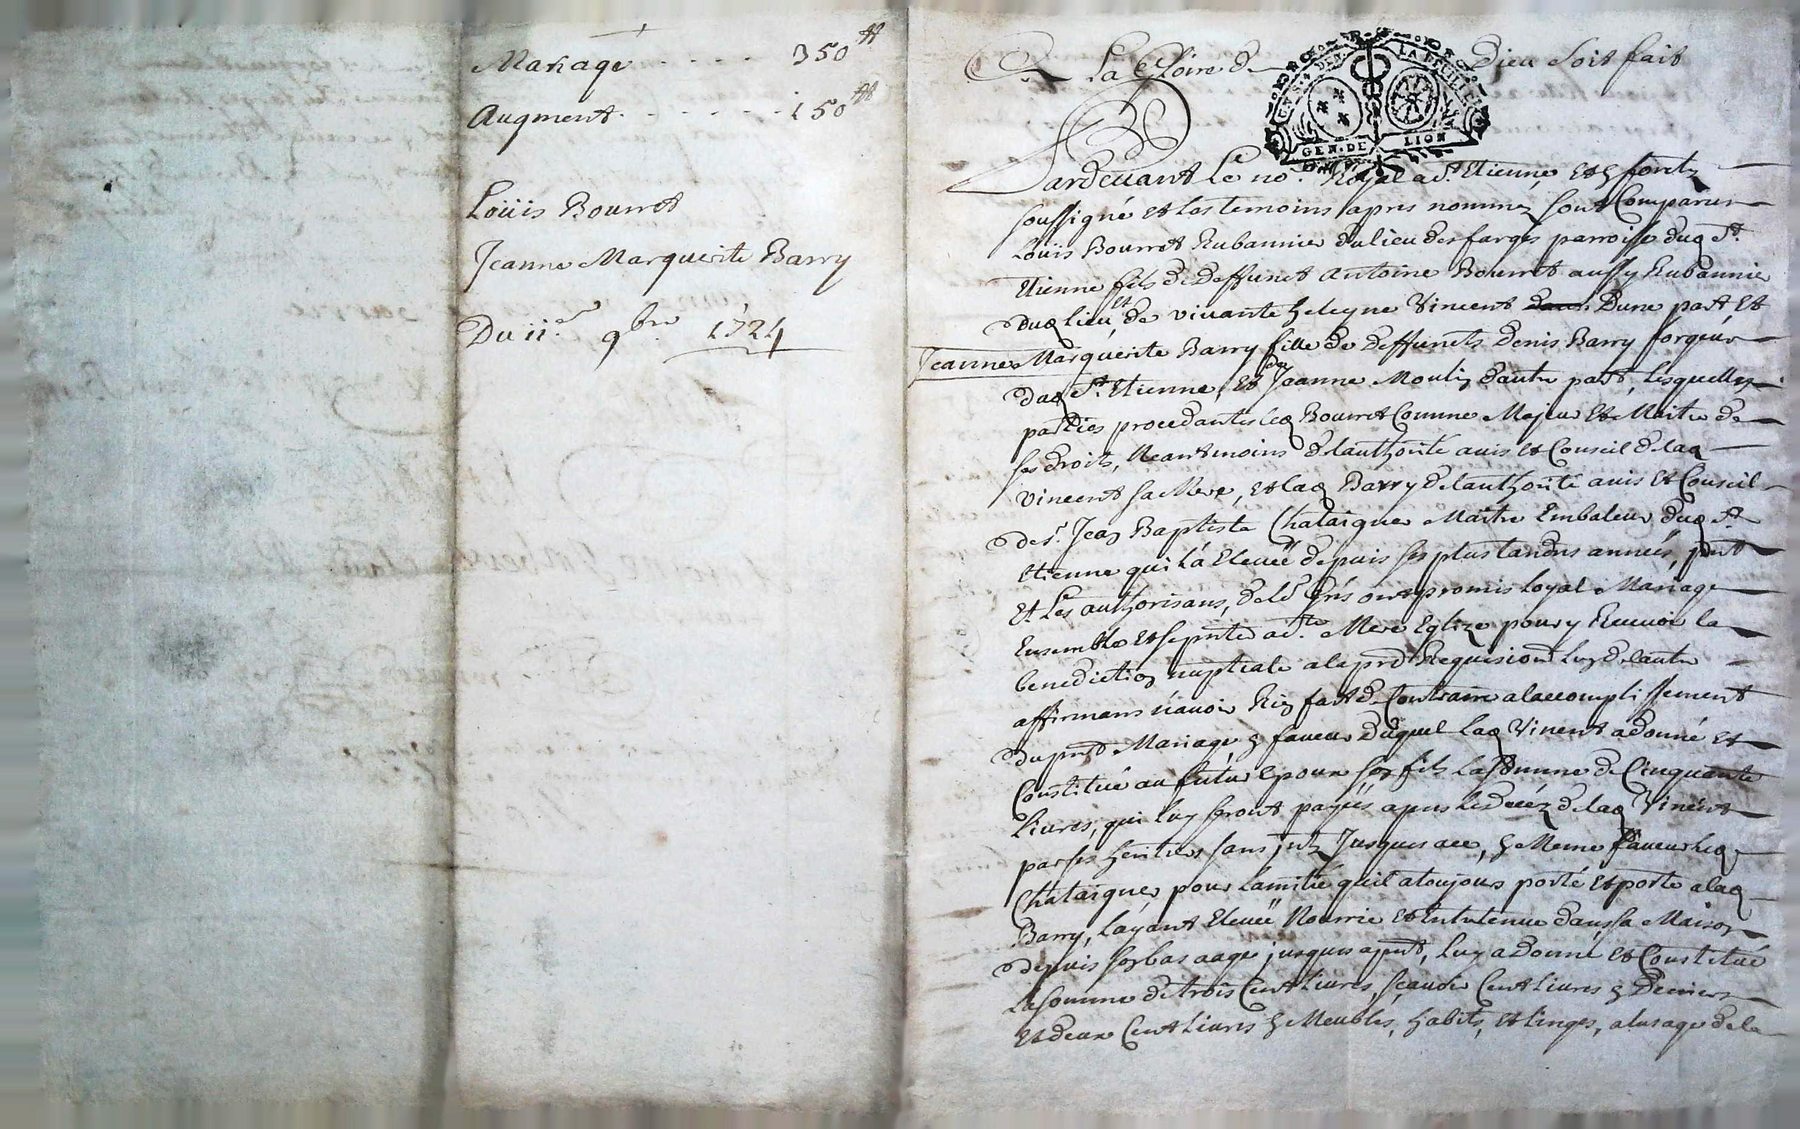 Mariage . . . . . 350 tt
Augment . . . . . . 150 tt
Loüis Bourret
Jeanne Marguerite Barry
Du 11e 9bre 1724
A La Gloire de Dieu soit fait
GEN. DE LION
Pardevant Le no.re Royal a St. Etienne et
soussigné et les temoins apres nommez sont Comparus
Loüis Bourret Rubannier du lieu des farges parroisse dud St.
Etienne fils de deffunct Antoine Bourret aussy Rubannier
dud lieu, et de vivante heleyne Vincent Dune part, Et
Jeanne Marguerite Barry fille de deffuncts denis Barry forgeur
dud St. Etienne, et de Jeanne Moulin dautre part, Lesquelles
parties procedantes led Bourret Comme Majeur et Maitre de
ses droits, Neantmoins de lauthorité avis et Conseil de lad
vincent sa Mere, et lad Barry de lauthorité avis et Conseil
de sr. Jean Baptiste Chataignier Maitre Embaleur dud St.
Etienne qui L'a Elevéé depuis ses plus tandres annéés, pnt
et Les authorisans, de Leurs Grés ont promis loyal Mariage
Ensemble et se pnter a nte. Mere Eglize pour y Recevoir la
benediction nuptiale a la pre Requisition Lun de lautre
affirmans n'avoir Rien fait de Contraire a laccomplissement
du pnt Mariage En faveur Duquel Lad Vincent a donné et
Constitué au futur Epoux son fils La somme de Cinquante
Livres, qui luy seront payéés apres le decéz de lad Vincent
par ses heritiers sans jnts Jusques a ce, En Meme faveur led
Chataignier pour Lamitié quil a toujours porté et porte a lad
Barry, Layant Elevéé Nourrie et Entretenue dans sa Maison
depuis son bas aage jusques a pnt, Luy a Donné et Constitué
La somme de trois Cent Livres, sçavoir Cent Livres En Deniers
Et deux Cent Livres En Meubles, habits, et linges, a lusage de la